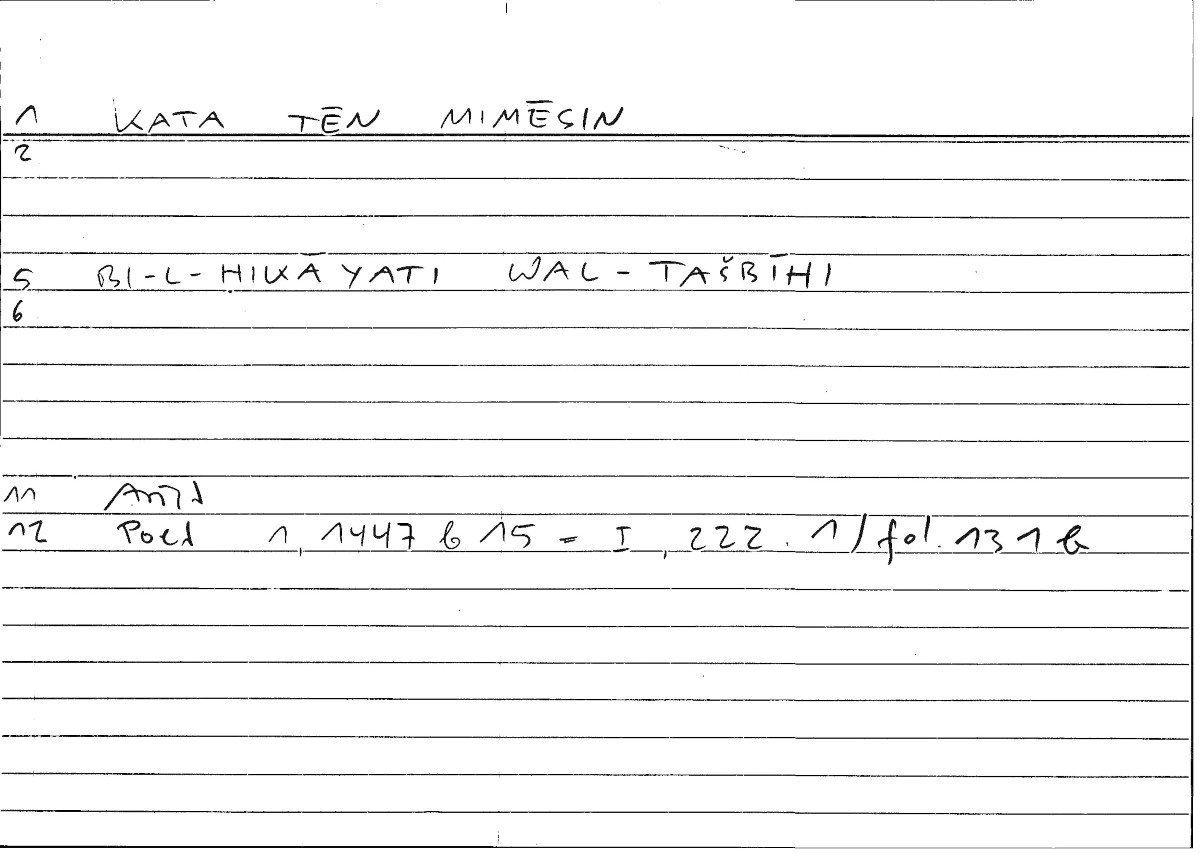 1 KATA TĒN MIMĒSIN
2
5 BI-L-ḤIKĀYATI WAL-TAŠBĪHI
6
11
12 Poet 1, 1447 b 15 = I, 222.1/fol. 131 b